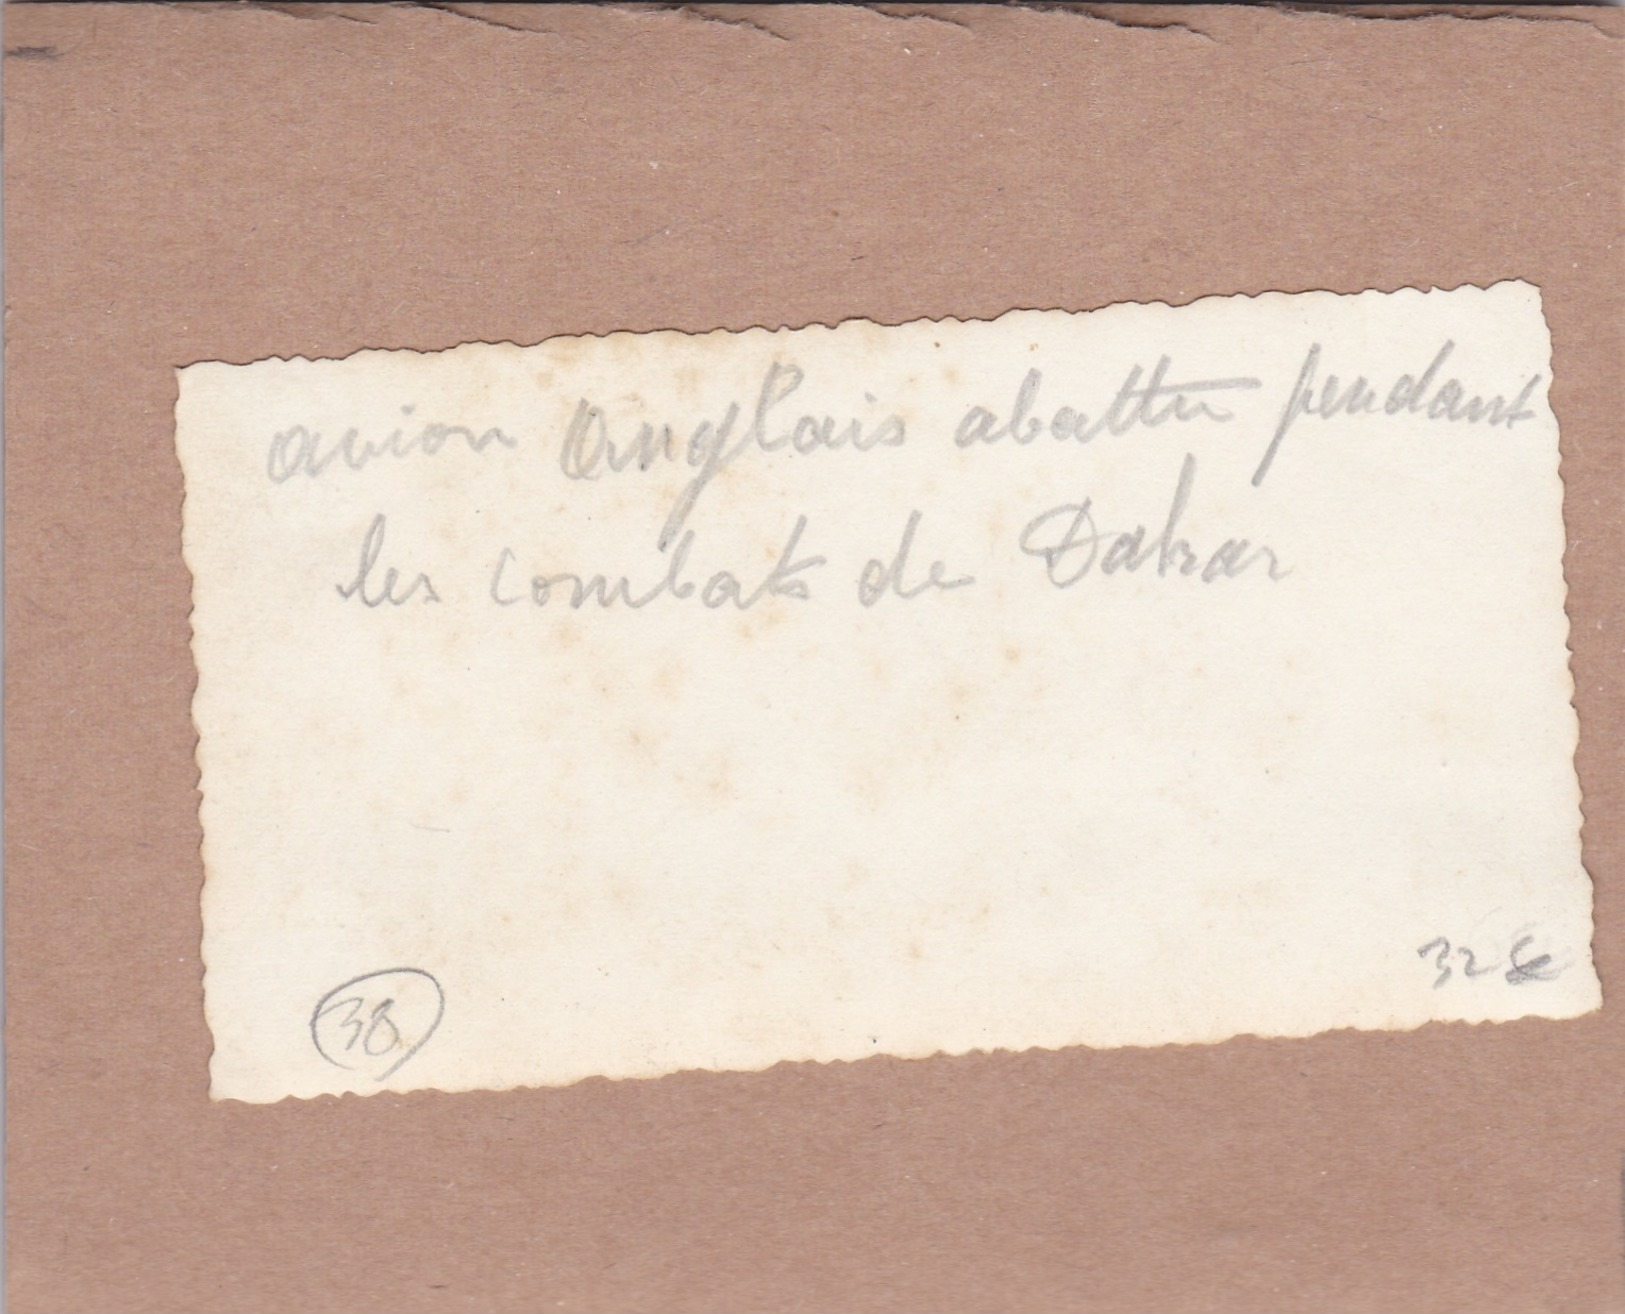 avion Anglais abattu pendant
les combats de Dakar
38
32 €